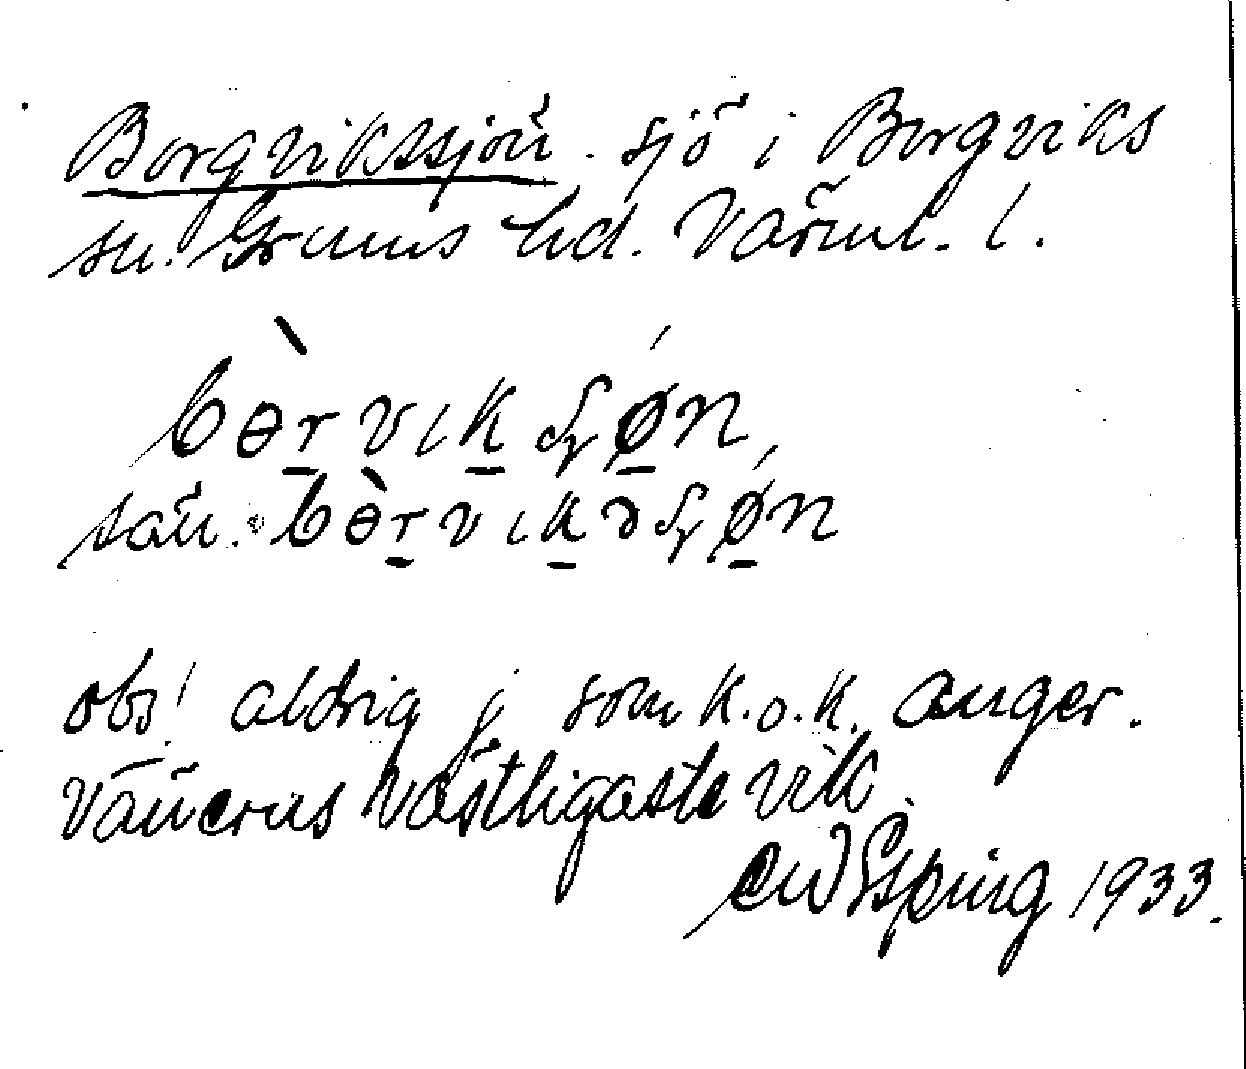 Borgvikssjön. sjö i Borgviks
sn. Grums hd. Värml. l.
bɵ̀rvikʂøn,
sän. bɵ̀rvikəʂøn
obs! aldrig j som k.o.k. anger.
Vänerns västligaste vik.
CW Esping 1933.